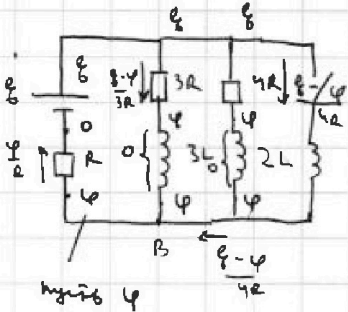 ξ ξ
ξ ξ
ξ-φ/3R 3R 4R ξ-φ/4R
0 φ φ
φ/R R 0 3L 0 2L
φ φ φ
B
ξ-φ/4R
пусть φ